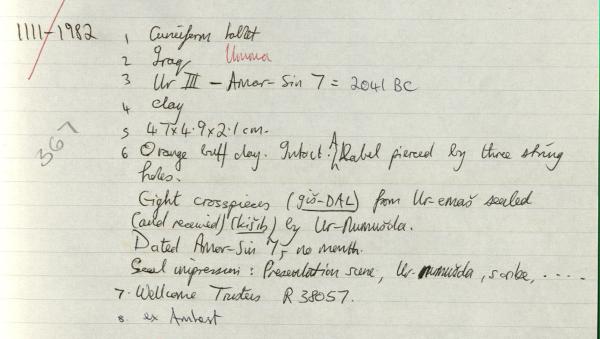 1111-1982
1 Cuneiform tablet
2 Iraq Umma
3 Ur III - Amar-Sin 7 = 2041 BC
4 clay
5 4.7x4.9x2.1cm.
367
6 Orange buff clay. Intact. A label pierced by three string
holes.
Eight crosspieces (giš-DAL) from Ur-emaš sealed
(and received) (kišib) by Ur-Numušda.
Dated Amar-Sin 7, no month.
Seal impression: Presentation scene, Ur-numušda, scribe, .....
7. Wellcome Trustees R 38057.
8. ex